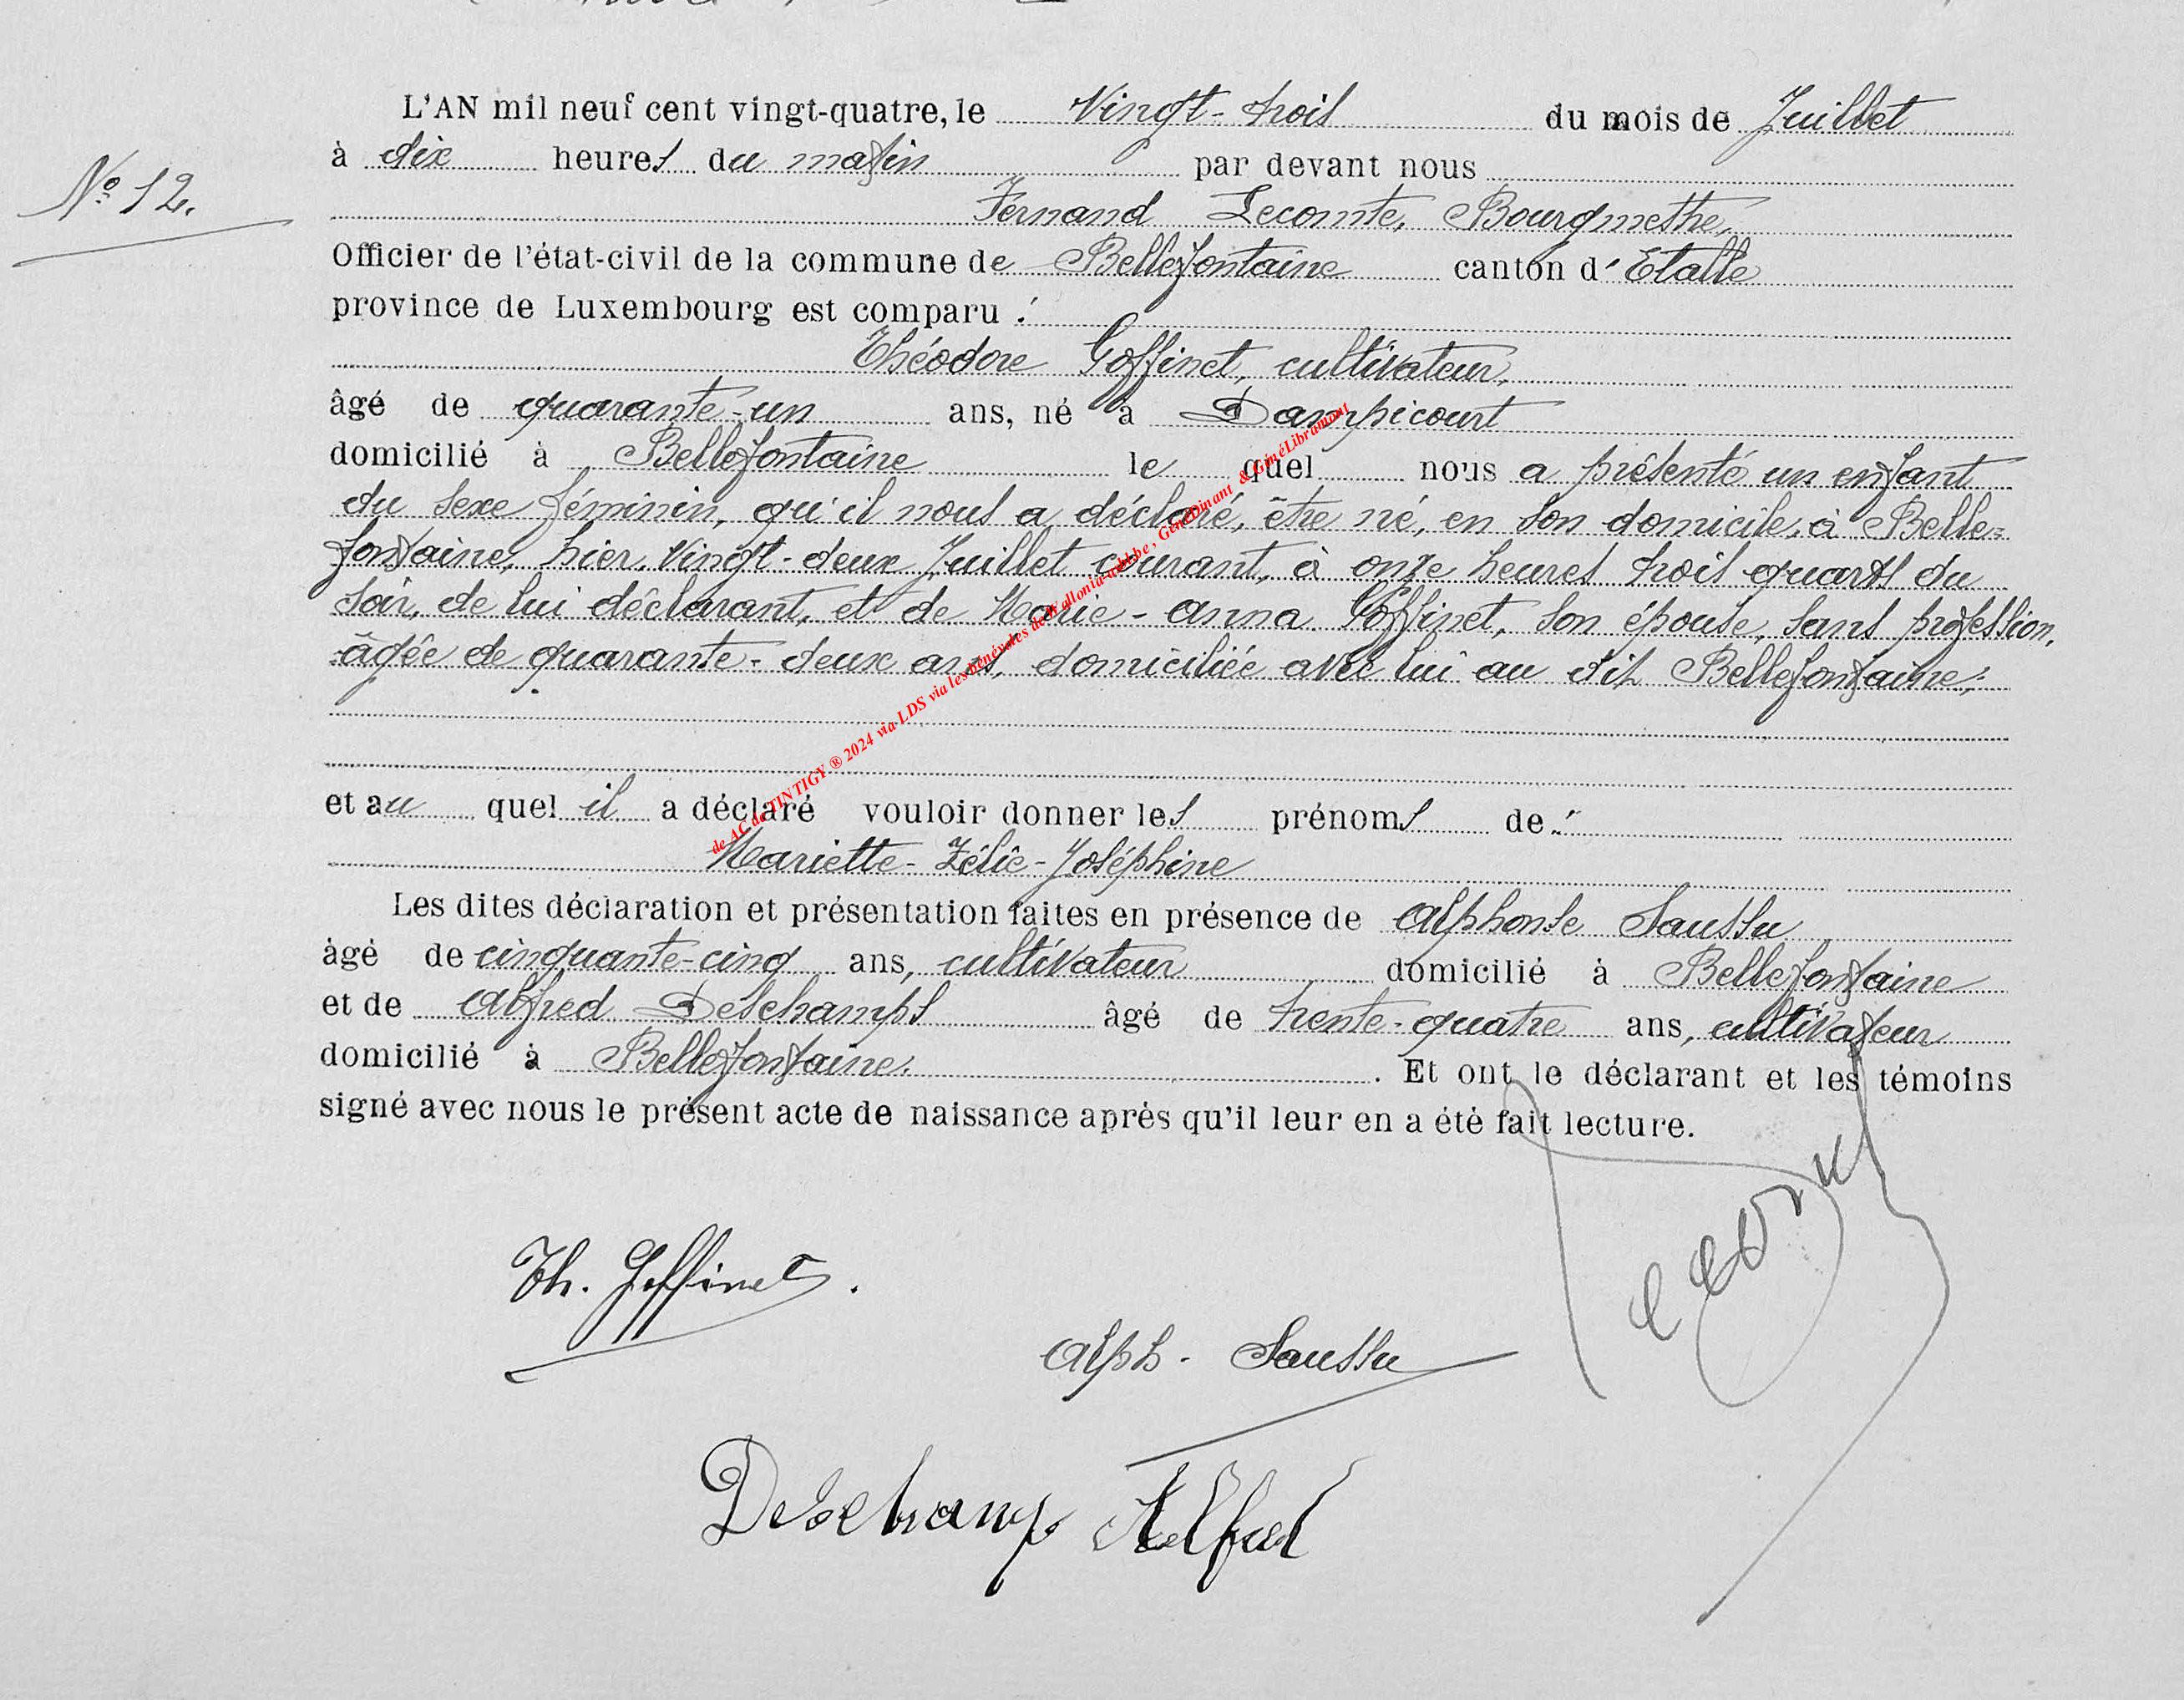 L'AN mil neuf cent vingt-quatre, le Vingt-trois du mois de Juillet
à dix heures du matin par devant nous
N° 12.
Fernand Lecomte, Bourgmestre,
Officier de l'état-civil de la commune de Bellefontaine canton d'Etalle
province de Luxembourg est comparu :
Théodore Goffinet, cultivateur,
âgé de quarante-un ans, né à Dampicourt
domicilié à Bellefontaine le quel nous a présenté un enfant
du sexe féminin, qu'il nous a déclaré, être né, en son domicile, à Belle=
fontaine, hier, Vingt-deux Juillet courant, à onze heures trois quarts du
soir, de lui déclarant, et de Marie-Anna Goffinet, son épouse, sans profession,
âgée de quarante-deux ans, domiciliée avec lui au dit Bellefontaine;
et au quel il a déclaré vouloir donner les prénoms de :
Mariette-Zélie-Joséphine
Les dites déclaration et présentation faites en présence de Alphonse Saussu
âgé de cinquante-cinq ans, cultivateur domicilié à Bellefontaine
et de Alfred Deschamps âgé de trente-quatre ans, cultivateur
domicilié à Bellefontaine. Et ont le déclarant et les témoins
signé avec nous le présent acte de naissance après qu'il leur en a été fait lecture.
Th. Goffinet.
Alph. Saussu
Deschamps Alfred
de AC de TINTIGY ® 2024 via LDS via les bénévoles de Wallonia-asbl.be, GénéDinant & GénéLibramont